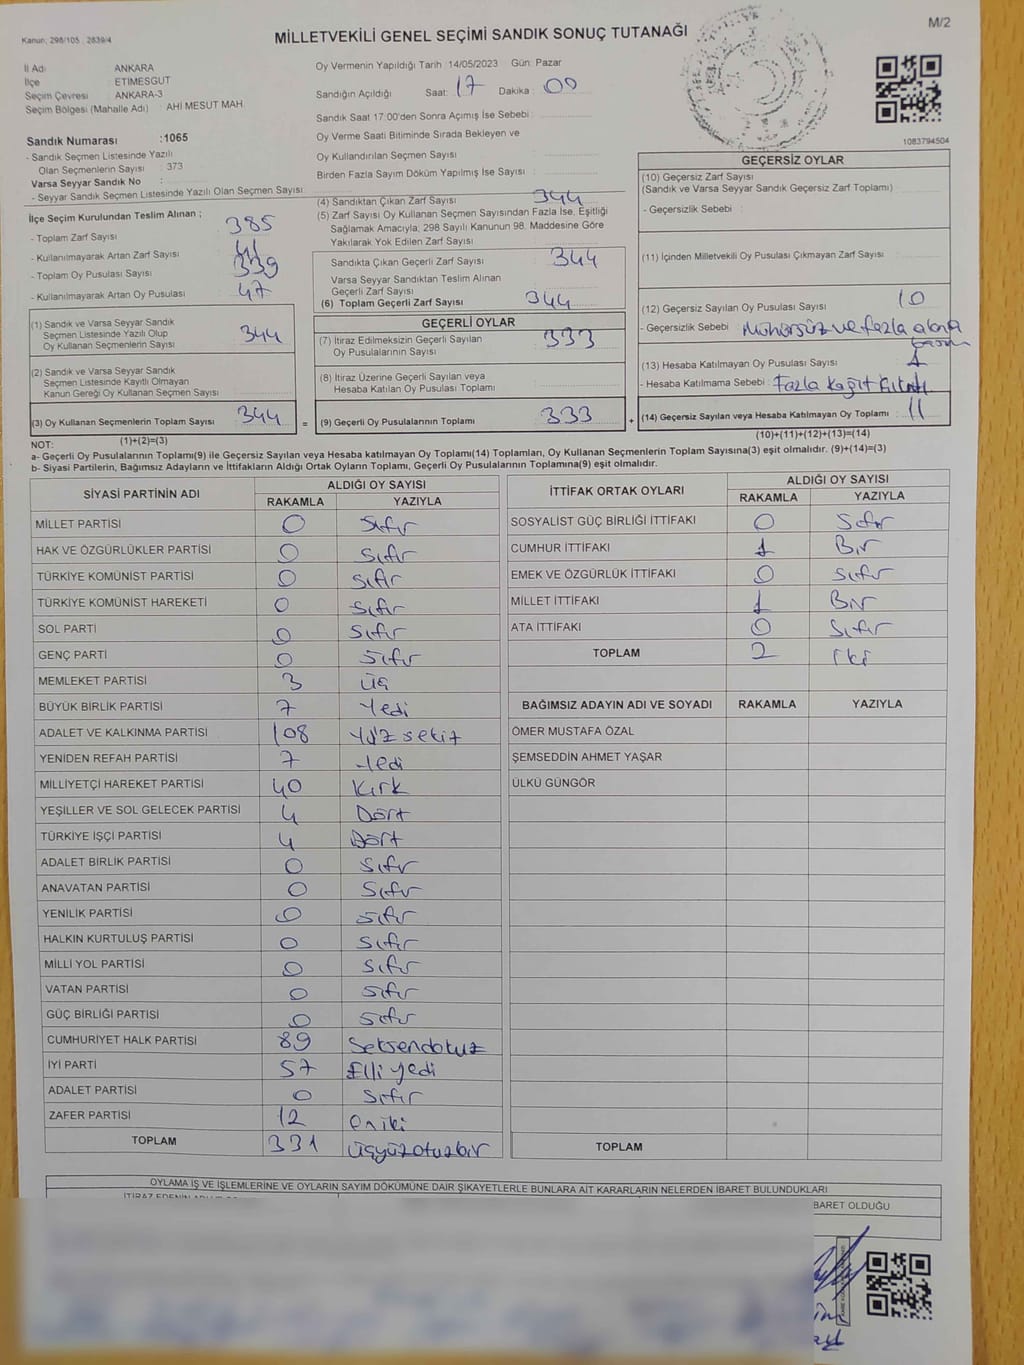 Kanun, 298/105 ; 2839/4
MİLLETVEKİLİ GENEL SEÇİMİ SANDIK SONUÇ TUTANAĞI
M/2
İl Adı ANKARA
İlçe ETİMESGUT
Seçim Çevresi ANKARA-3
Seçim Bölgesi (Mahalle Adı) : AHİ MESUT MAH
Oy Vermenin Yapıldığı Tarih : 14/05/2023 Gün: Pazar
Sandığın Açıldığı Saat: 17 Dakika : 00
Sandık Saat 17:00'den Sonra Açımış İse Sebebi :
Oy Verme Saati Bitiminde Sırada Bekleyen ve
Oy Kullandırılan Seçmen Sayısı
Birden Fazla Sayım Döküm Yapılmış İse Sayısı :
1083794504
Sandık Numarası :1065
- Sandık Seçmen Listesinde Yazılı
Olan Seçmenlerin Sayısı : 373
Varsa Seyyar Sandık No :
- Seyyar Sandık Seçmen Listesinde Yazılı Olan Seçmen Sayısı :
İlçe Seçim Kurulundan Teslim Alınan ;
- Toplam Zarf Sayısı 385
- Kullanılmayarak Artan Zarf Sayısı 41
- Toplam Oy Pusulası Sayısı 339
- Kullanılmayarak Artan Oy Pusulası 47
(1) Sandık ve Varsa Seyyar Sandık
Seçmen Listesinde Yazılı Olup
Oy Kullanan Seçmenlerin Sayısı 344
(2) Sandık ve Varsa Seyyar Sandık
Seçmen Listesinde Kayıtlı Olmayan
Kanun Gereği Oy Kullanan Seçmen Sayısı
(3) Oy Kullanan Seçmenlerin Toplam Sayısı 344 =
(1)+(2)=(3)
(4) Sandıktan Çıkan Zarf Sayısı 344
(5) Zarf Sayısı Oy Kullanan Seçmen Sayısından Fazla İse, Eşitliği
Sağlamak Amacıyla, 298 Sayılı Kanunun 98. Maddesine Göre
Yakılarak Yok Edilen Zarf Sayısı
Sandıkta Çıkan Geçerli Zarf Sayısı 344
Varsa Seyyar Sandıktan Teslim Alınan
Geçerli Zarf Sayısı
(6) Toplam Geçerli Zarf Sayısı 344
GEÇERLİ OYLAR
(7) İtiraz Edilmeksizin Geçerli Sayılan
Oy Pusulalarının Sayısı 333
(8) İtiraz Üzerine Geçerli Sayılan veya
Hesaba Katılan Oy Pusulası Toplamı
(9) Geçerli Oy Pusulalarının Toplamı 333 +
GEÇERSİZ OYLAR
(10) Geçersiz Zarf Sayısı
(Sandık ve Varsa Seyyar Sandık Geçersiz Zarf Toplamı)
- Geçersizlik Sebebi :
(11) İçinden Milletvekili Oy Pusulası Çıkmayan Zarf Sayısı
(12) Geçersiz Sayılan Oy Pusulası Sayısı 10
- Geçersizlik Sebebi : Mühürsüz ve fazla alana
(13) Hesaba Katılmayan Oy Pusulası Sayısı 1
- Hesaba Katılmama Sebebi : Fazla kağıt
(14) Geçersiz Sayılan veya Hesaba Katılmayan Oy Toplamı : 11
(10)+(11)+(12)+(13)=(14)
NOT:
a- Geçerli Oy Pusulalarının Toplamı(9) ile Geçersiz Sayılan veya Hesaba katılmayan Oy Toplamı(14) Toplamları, Oy Kullanan Seçmenlerin Toplam Sayısına(3) eşit olmalıdır. (9)+(14)=(3)
b- Siyasi Partilerin, Bağımsız Adayların ve İttifakların Aldığı Ortak Oyların Toplamı, Geçerli Oy Pusulalarının Toplamına(9) eşit olmalıdır.
SİYASİ PARTİNİN ADI ALDIĞI OY SAYISI
RAKAMLA YAZIYLA
MİLLET PARTİSİ 0 Sıfır
HAK VE ÖZGÜRLÜKLER PARTİSİ 0 Sıfır
TÜRKİYE KOMÜNİST PARTİSİ 0 Sıfır
TÜRKİYE KOMÜNİST HAREKETİ 0 Sıfır
SOL PARTİ 0 Sıfır
GENÇ PARTİ 0 Sıfır
MEMLEKET PARTİSİ 3 Üç
BÜYÜK BİRLİK PARTİSİ 7 Yedi
ADALET VE KALKINMA PARTİSİ 108 Yüz sekiz
YENİDEN REFAH PARTİSİ 7 Yedi
MİLLİYETÇİ HAREKET PARTİSİ 40 Kırk
YEŞİLLER VE SOL GELECEK PARTİSİ 4 Dört
TÜRKİYE İŞÇİ PARTİSİ 4 Dört
ADALET BİRLİK PARTİSİ 0 Sıfır
ANAVATAN PARTİSİ 0 Sıfır
YENİLİK PARTİSİ 0 Sıfır
HALKIN KURTULUŞ PARTİSİ 0 Sıfır
MİLLİ YOL PARTİSİ 0 Sıfır
VATAN PARTİSİ 0 Sıfır
GÜÇ BİRLİĞİ PARTİSİ 0 Sıfır
CUMHURİYET HALK PARTİSİ 89 Seksendokuz
İYİ PARTİ 57 Elli yedi
ADALET PARTİSİ 0 Sıfır
ZAFER PARTİSİ 12 Oniki
TOPLAM 331 Üçyüzotuzbir
İTTİFAK ORTAK OYLARI ALDIĞI OY SAYISI
RAKAMLA YAZIYLA
SOSYALİST GÜÇ BİRLİĞİ İTTİFAKI 0 Sıfır
CUMHUR İTTİFAKI 1 Bir
EMEK VE ÖZGÜRLÜK İTTİFAKI 0 Sıfır
MİLLET İTTİFAKI 1 Bir
ATA İTTİFAKI 0 Sıfır
TOPLAM 2 iki
BAĞIMSIZ ADAYIN ADI VE SOYADI RAKAMLA YAZIYLA
ÖMER MUSTAFA ÖZAL
ŞEMSEDDİN AHMET YAŞAR
ÜLKÜ GÜNGÖR
TOPLAM
OYLAMA İŞ VE İŞLEMLERİNE VE OYLARIN SAYIM DÖKÜMÜNE DAİR ŞİKAYETLERLE BUNLARA AİT KARARLARIN NELERDEN İBARET BULUNDUKLARI
BARET OLDUĞU